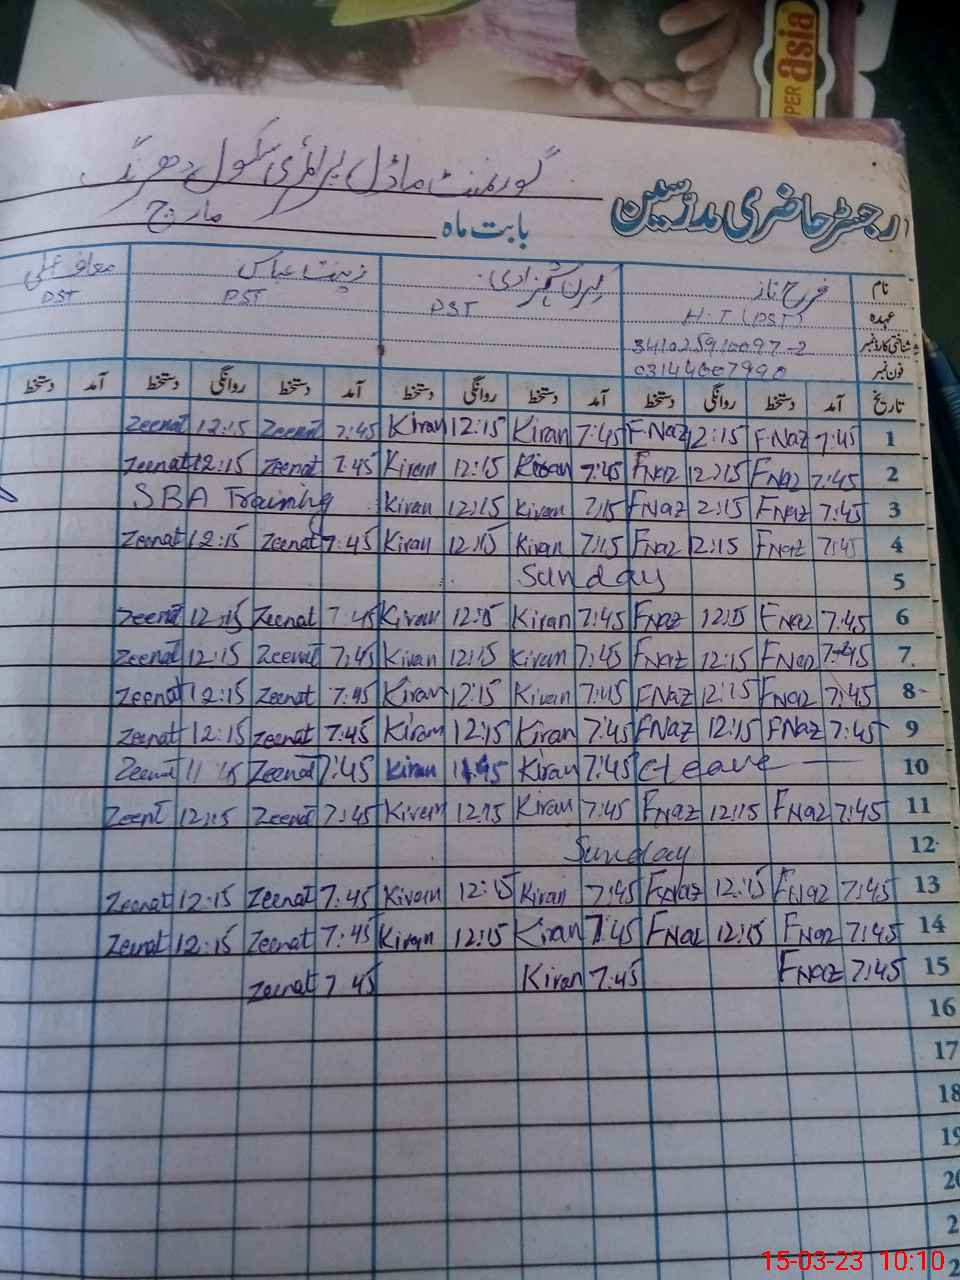 PER asia
گورنمنٹ ماڈل پرائمری سکول
رجسٹر حاضری مدرسین
بابت ماہ مارچ
نام فرح ناز کرن شہزادی زینت عباس
عہدہ H.T (PST) PST PST PST
شناختی کارڈ نمبر
فون نمبر 03144607990
تاریخ آمد دستخط روانگی دستخط آمد دستخط روانگی دستخط آمد دستخط روانگی دستخط آمد دستخط
1 7:45 F-Naz 12:15 F-Naz 7:45 Kiran 12:15 Kiran 7:45 Zeenat 12:15 Zeenat
2 7:45 FNaz 12:15 FNaz 7:45 Kiran 12:15 Kiran 7:45 Zeenat 12:15 Zeenat
3 7:45 FNaz 2:15 FNaz 7:15 Kiran 12:15 Kiran SBA Training
4 7:45 FNaz 12:15 FNaz 7:15 Kiran 12:15 Kiran 7:45 Zeenat 12:15 Zeenat
5 Sunday
6 7:45 FNaz 12:15 FNaz 7:45 Kiran 12:15 Kiran 7:45 Zeenat 12:15 Zeenat
7 7:45 FNaz 12:15 FNaz 7:45 Kiran 12:15 Kiran 7:45 Zeenat 12:15 Zeenat
8 7:45 FNaz 12:15 FNaz 7:45 Kiran 12:15 Kiran 7:45 Zeenat 12:15 Zeenat
9 7:45 FNaz 12:15 FNaz 7:45 Kiran 12:15 Kiran 7:45 Zeenat 12:15 Zeenat
10 C leave 7:45 Kiran 11:45 Kiran 7:45 Zeenat 11:45 Zeenat
11 7:45 FNaz 12:15 FNaz 7:45 Kiran 12:15 Kiran 7:45 Zeenat 12:15 Zeent
12 Sunday
13 7:45 FNaz 12:15 FNaz 7:45 Kiran 12:15 Kiran 7:45 Zeenat 12:15 Zeenat
14 7:45 FNaz 12:15 FNaz 7:45 Kiran 12:15 Kiran 7:45 Zeenat 12:15 Zeenat
15 7:45 FNaz 7:45 Kiran 7:45 Zeenat
16
17
18
19
20
2
2
15-03-23 10:10